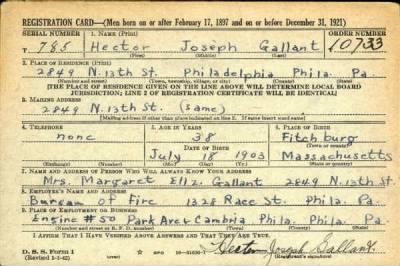 REGISTRATION CARD—(Men born on or after February 17, 1897 and on or before December 31, 1921)
SERIAL NUMBER 1. NAME (Print) ORDER NUMBER
T 785 Hector Joseph Gallant 10733
(First) (Middle) (Last)
2. PLACE OF RESIDENCE (Print)
2849 N. 13th St. Philadelphia Phila. Pa.
(Number and street) (Town, township, village, or city) (County) (State)
[THE PLACE OF RESIDENCE GIVEN ON THE LINE ABOVE WILL DETERMINE LOCAL BOARD
JURISDICTION; LINE 2 OF REGISTRATION CERTIFICATE WILL BE IDENTICAL]
3. MAILING ADDRESS
2849 N. 13th St. (same)
[Mailing address if other than place indicated on line 2. If same insert word same]
4. TELEPHONE 5. AGE IN YEARS 6. PLACE OF BIRTH
none 38 Fitchburg
DATE OF BIRTH (Town or county)
July 18 1903 Massachusetts
(Exchange) (Number) (Mo.) (Day) (Yr.) (State or country)
7. NAME AND ADDRESS OF PERSON WHO WILL ALWAYS KNOW YOUR ADDRESS
Mrs. Margaret Eliz. Gallant 2849 N. 13th St.
8. EMPLOYER'S NAME AND ADDRESS
Bureau of Fire 1328 Race St. Phila. Pa.
9. PLACE OF EMPLOYMENT OR BUSINESS
Engine #50 Park Ave & Cambria Phila. Phila. Pa
(Number and street or R. F. D. number) (Town) (County) (State)
I AFFIRM THAT I HAVE VERIFIED ABOVE ANSWERS AND THAT THEY ARE TRUE.
D. S. S. Form 1
(Revised 1-1-42) GPO Hector Joseph Gallant